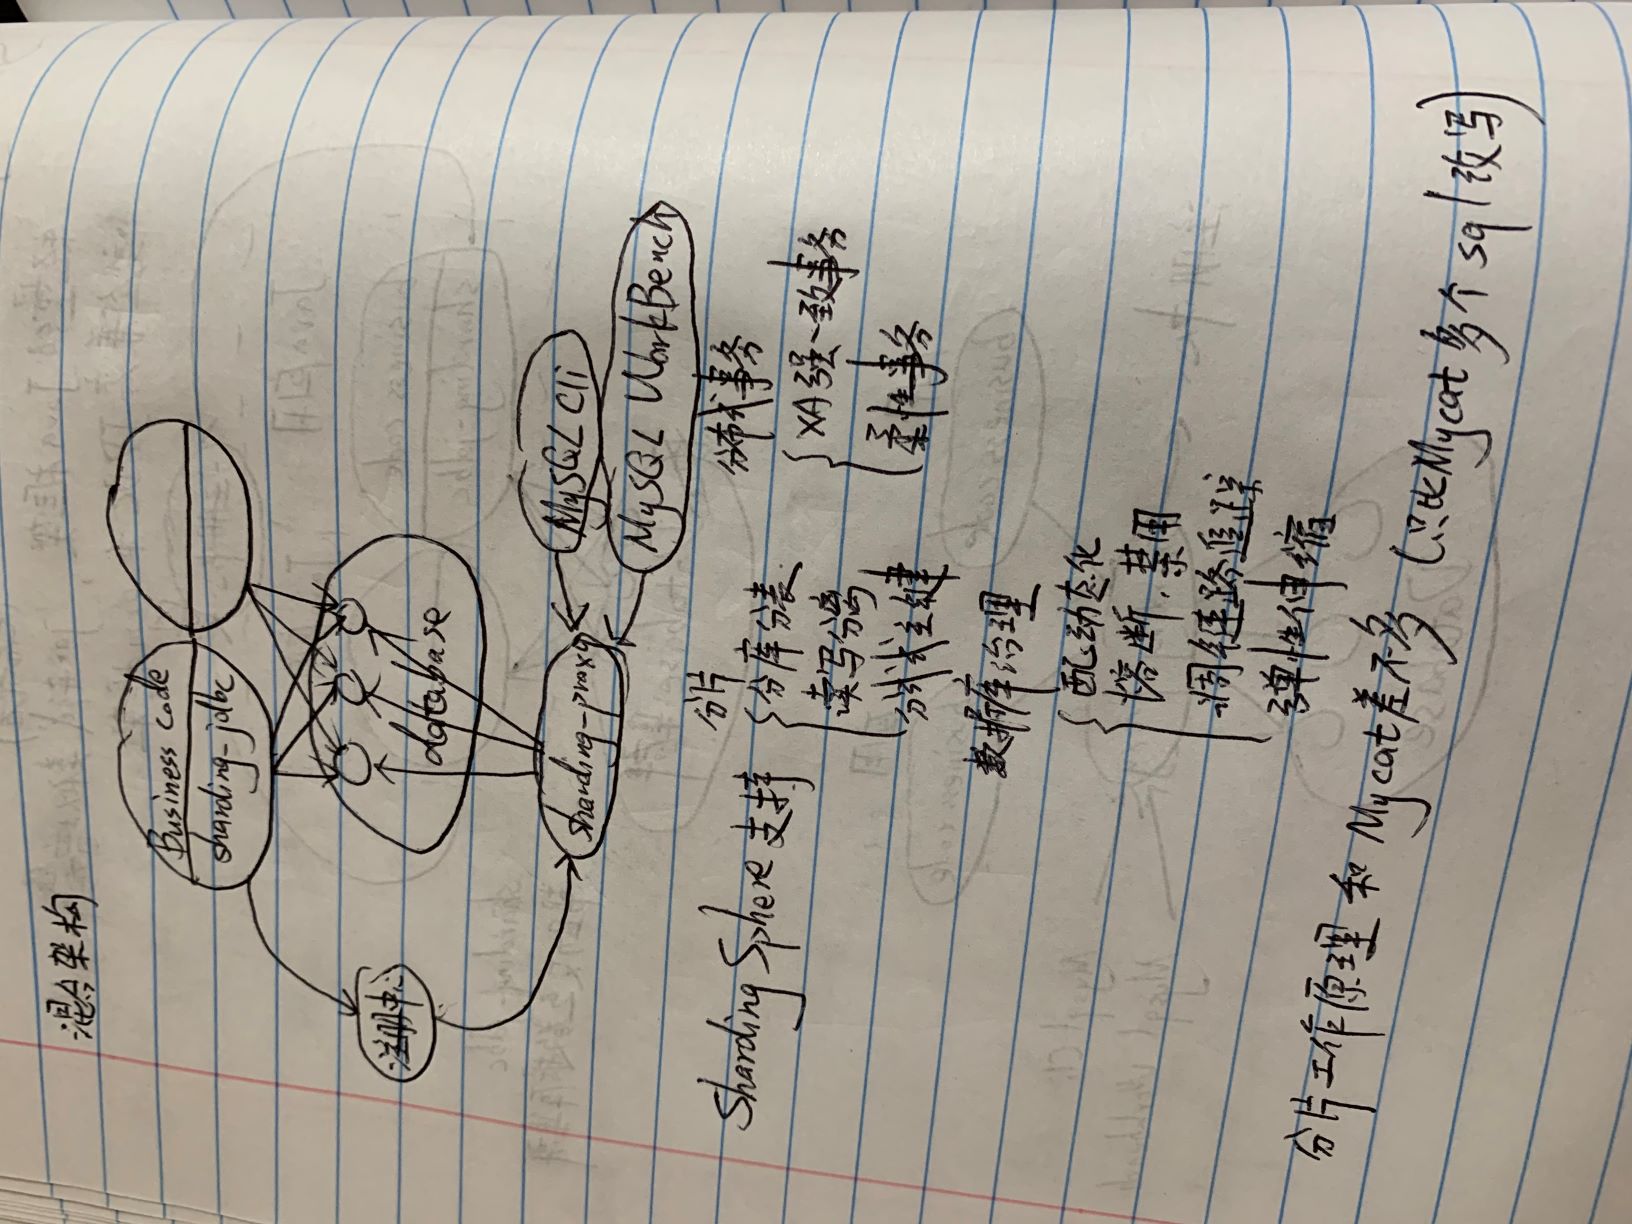 混合架构
Business Code
sharding-jdbc
注册中心
database
sharding-proxy
MySQL Cli
MySQL WorkBench
Sharding Sphere 支持
分片
分库分表
读写分离
分式主键
分布式事务
XA强一致事务
柔性事务
数据库治理
配动态化
熔断、禁用
调链路追踪
弹性伸缩
分片工作原理和Mycat差不多 (只比Mycat多个sql改写)